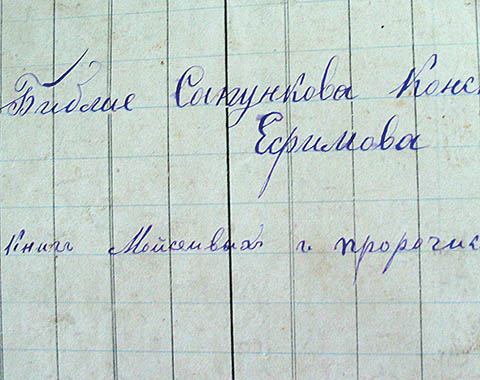 Библие Сапункова Конс
Ефимова
Книг Мойсеивых г. пророчис